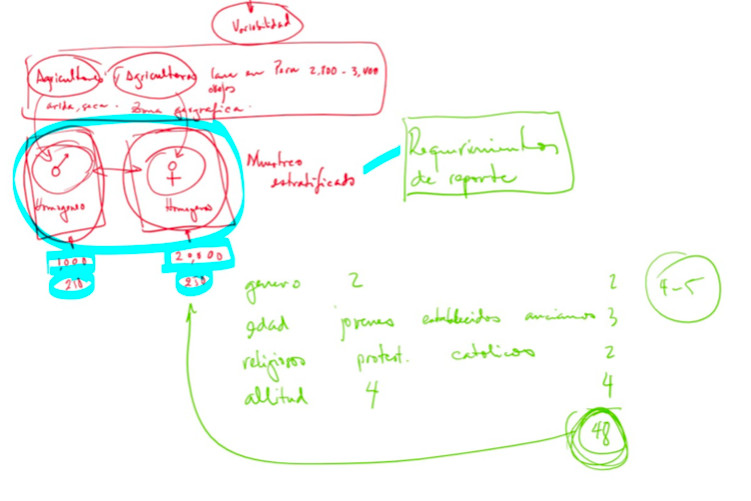 Variabilidad
Agricultores Agricultoras lana en Peru 2,800 - 3,400
arida, seca. Zona geografica.
♂ ♀
Muestreo
estratificado
Homogeneo Homogeneo
Requerimientos
de reporte
1,000 20,000
210 210
genero 2 2
4-5
edad jovenes establecidos ancianos 3
religiosos protest. catolicos 2
altitud 4 4
48